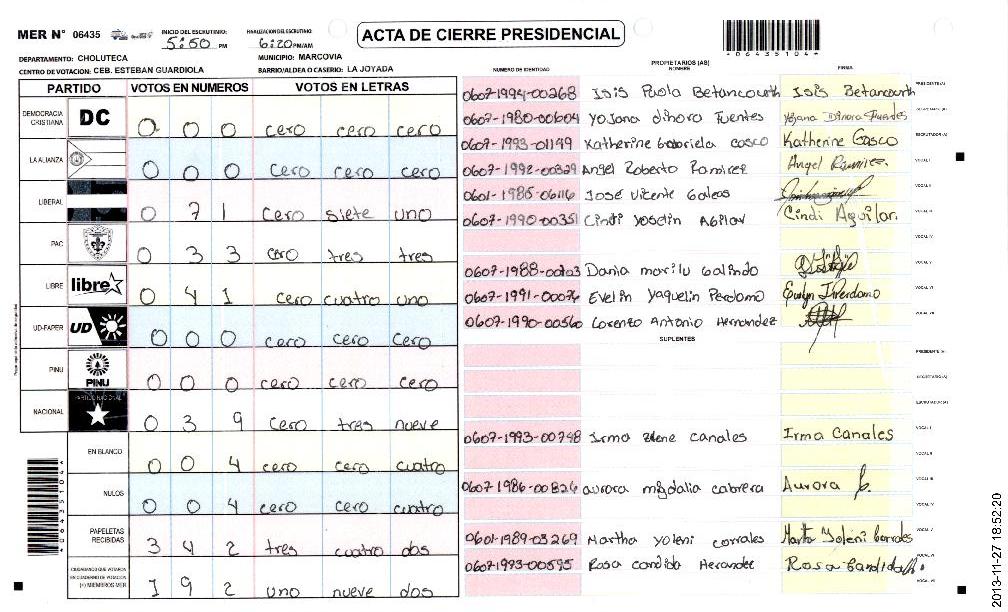 MER N° 06435
INICIO DEL ESCRUTINIO: 5:50 PM
FINALIZACION DEL ESCRUTINIO 6:20 PM/AM
ACTA DE CIERRE PRESIDENCIAL
* 0 6 4 3 5 1 0 4 *
DEPARTAMENTO: CHOLUTECA
MUNICIPIO: MARCOVIA
CENTRO DE VOTACION: CEB. ESTEBAN GUARDIOLA
BARRIO/ALDEA O CASERIO: LA JOYADA
PARTIDO VOTOS EN NUMEROS VOTOS EN LETRAS
DEMOCRACIA CRISTIANA DC 0 0 0 cero cero cero
LA ALIANZA 0 0 0 cero cero cero
LIBERAL 0 7 1 cero siete uno
PAC 0 3 3 cero tres tres
LIBRE libre 0 4 1 cero cuatro uno
UD-FAPER UD 0 0 0 cero cero cero
PINU PINU 0 0 0 cero cero cero
NACIONAL PARTIDO NACIONAL 0 3 9 cero tres nueve
EN BLANCO 0 0 4 cero cero cuatro
NULOS 0 0 4 cero cero cuatro
PAPELETAS RECIBIDAS 3 4 2 tres cuatro dos
CIUDADANOS QUE VOTARON EN CUADERNO DE VOTACION (+) MIEMBROS MER 1 9 2 uno nueve dos
NUMERO DE IDENTIDAD PROPIETARIOS (AS) NOMBRE FIRMA
0607-1994-00268 Isis Paola Betancourth Isis Betancourth PRESIDENTE(A)
0607-1980-00604 Yojana dinora Fuentes Yojana Dinora Fuentes SECRETARIO(A)
0607-1993-01199 Katherine Gabriela cosco Katherine Gosco ESCRUTADOR(A)
0607-1992-00329 Angel Roberto Ramirez Angel Ramirez VOCAL I
0601-1985-06116 José Vicente Galeas VOCAL II
0607-1990-00351 Cindi yoselin Agilar Cindi Aguilar. VOCAL III
VOCAL IV
0607-1988-00203 Dania marilu Galindo VOCAL V
0607-1991-00076 Evelin Yaquelin Perdomo Evelyn Perdomo VOCAL VI
0607-1990-00560 Lorenzo Antonio Hernandez VOCAL VII
SUPLENTES
PRESIDENTE(A)
SECRETARIO(A)
ESCRUTADOR(A)
0607-1993-00798 Irma Elene canales Irma Canales VOCAL I
VOCAL II
0607-1986-00826 aurora migdalia cabrera Aurora VOCAL III
VOCAL IV
0601-1989-03269 Martha Yoleni corrales Martha Yoleni Corrales VOCAL V
0607-1993-00595 Rosa candida Hernandez Rosa Candida VOCAL VI
VOCAL VII
2013-11-27 18:52:20